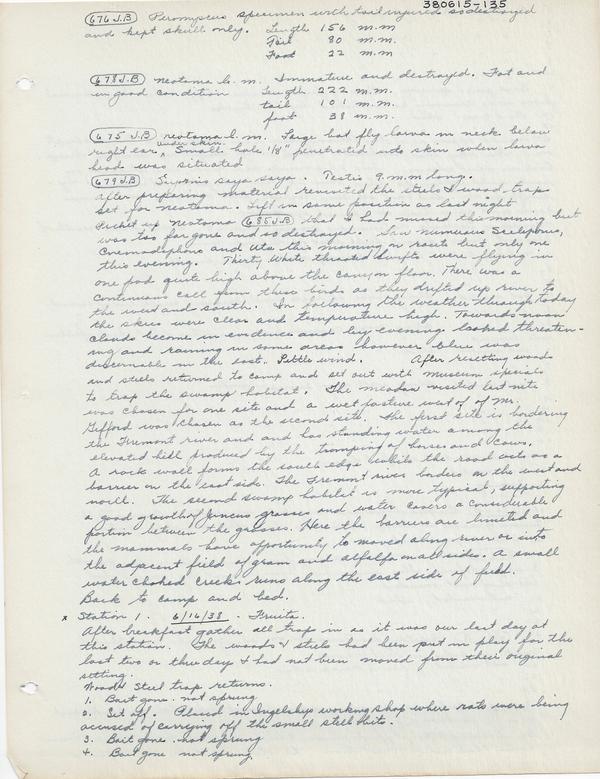 380615-135
676 J.B Peromyscus specimen with tail injured so destroyed
and kept skull only. Length 156 m.m
Tail 80 m.m.
Foot 22 m.m
678 J.B neotoma l. m. Immature and destroyed. Fat and
in good condition Length 222 m.m.
tail 101 m.m.
foot 38 m.m.
675 J.B neotoma l. m. Large bot fly larva in neck below
right ear, under skin. Small hole 1/8" penetrated into skin when larva
head was situated
679 J.B Sayornis saya saya. Testis 9 m.m long.
After preparing material revisited the steels & wood trap
set for neotoma. Left in same position as last night
Picked up neotoma 685 J.B that I had missed this morning but
was too far gone and so destroyed. Saw numerous Sceloporus,
Cnemidophorus and Uta this morning on route but only one
this evening. Thirty White throated Swifts were flying in
one pod quite high above the canyon floor. There was a
continuous call from these birds as they drifted up river to
the west and south. In following the weather through today
the skies were clear and temperature high. Towards noon
clouds become in evidence and by evening looked threaten-
ing and raining in some areas however blue was
discernable in the east. Little wind. After resetting woods
and steels returned to camp and set out with museum specials
to trap the swamp habitat. The meadow visited last nite
was chosen for one site and a wet pasture west of of Mr.
Gifford was chosen as the second site. The first site is bordering
the Fremont river and and has standing water among the
elevated hills produced by the tromping of horses and cows.
A rock wall forms the south edge while the road acts as a
barrier on the east side. The Fremont river borders on the west and
north. The second swamp habitat is more typical, supporting
a good growth of juncus grasses and water covers a considerable
portion between the grasses. Here the barriers are limited and
the mammals have opportunity to moved along river or into
the adjacent field of grain and alfalfa on all sides. A small
water choked creek runs along the east side of field.
Back to camp and bed.
x Station 1. 6/16/38 - Fruita.
After breakfast gather all trap in as it was our last day at
this station. The woods & steels had been put in play for the
last two or three day & had not been moved from their original
setting.
Wood & Steel trap returns.
1. Bait gone - not sprung
2. Set off. Placed in Ingelsby working shop where rats were being
accused of carrying off the small steel bits.
3. Bait gone. not sprung
4. Bait gone not sprung